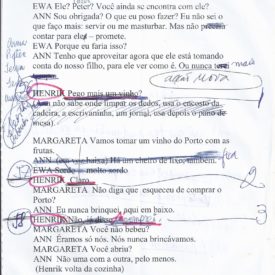 EWA Ele? Peter? Você ainda se encontra com ele?
ANN Sou obrigada? O que eu posso fazer? Eu não sei o
que faço mais: servir ou me masturbar. Mas não precisa
contar para ele – promete.
EWA Porque eu faria isso?
ANN Tenho que aproveitar agora que ele está tomando
conta do nosso filho, para ele ver como é. Ou nunca terei mais
HENRIK Pego mais um vinho?
(Ann não sabe onde limpar os dedos, usa o encosto da
cadeira, a escrivaninha, um jornal, usa depois o pano de
mesa).
MARGARETA Vamos tomar um vinho do Porto com as
frutas.
ANN (em voz baixa) Há um cheiro de lixo, também.
EWA Sordo – molto sordo
HENRIK Claro
2
MARGARETA Não diga que esqueceu de comprar o
Porto?
ANN Eu nunca brinquei, aqui em baixo.
HENRIK Não, já disse
MARGARETA Você não bebeu?
ANN Éramos só nós. Nós nunca brincávamos.
MARGARETA Você abriu?
ANN Não uma com a outra, pelo menos.
(Henrik volta da cozinha)